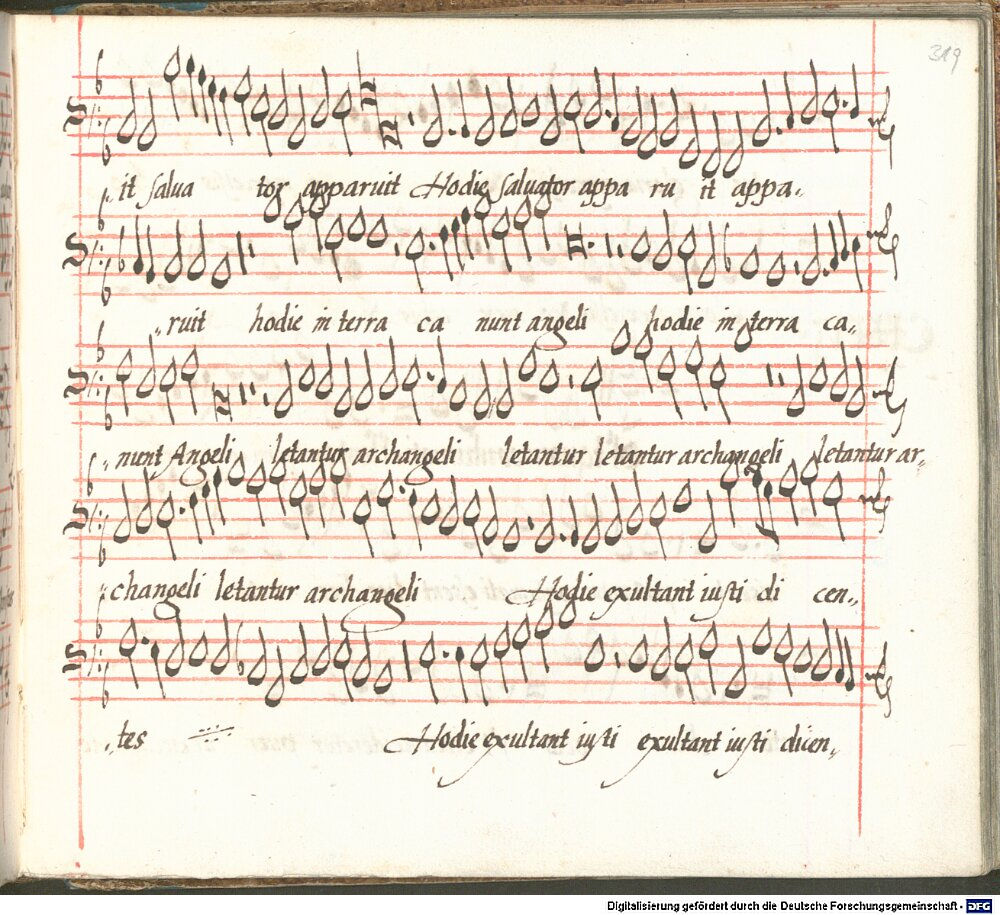 319
it salua tor apparuit Hodie saluator appa ru it appa.
ruit hodie in terra ca nunt angeli hodie in terra ca„
nunt Angeli letantur archangeli letantur letantur archangeli letantur ar„
changeli letantur archangeli Hodie exultant iusti di cen„
tes Hodie exultant iusti exultant iusti dicen„
Digitalisierung gefördert durch die Deutsche Forschungsgemeinschaft - DFG